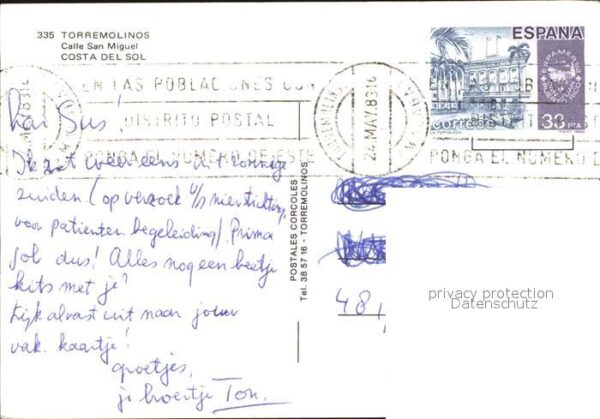 335 TORREMOLINOS
Calle San Miguel
COSTA DEL SOL
ESPAÑA
correos
LA FORTALEZA
ESPAMER
36 PTAS
EN LAS POBLACIONES CON
DISTRITO POSTAL
PONGA EL NUMERO DE ESTE
TORREMOLINOS
24.MAY.83.16
PONGA EL NUMERO D
Sus!
Ik zat weer eens in 't zonnige
zuiden (op verzoek v/d nierstichting
voor patienten begeleiding). Prima
job dus! Alles nog een beetje
kits met je?
Kijk alvast uit naar jouw
vak. kaartje!
groetjes,
je broertje Ton.
POSTALES CORCOLES
Tel. 38 57 16 - TORREMOLINOS
48,
privacy protection
Datenschutz